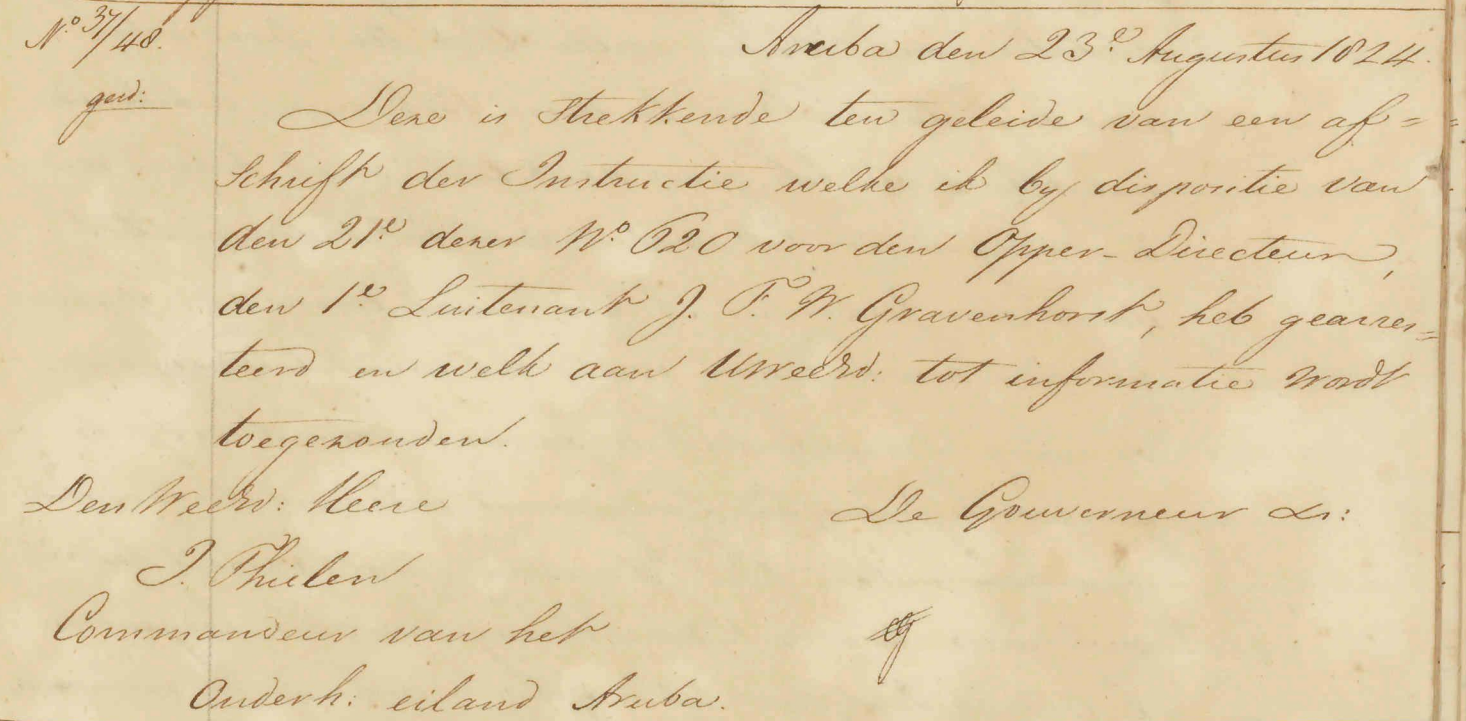 No 37/48. Aruba den 23e Augustus 1824.
geëd:
Deze is strekkende ten geleide van een af=
schrift der Instructie welke ik by dispositie van
den 21e dezer No 620 voor den Opper-Directeur,
den 1e Luitenant J. F. W. Gravenhorst, heb gearres=
teerd en welk aan UWeerd: tot informatie wordt
toegezonden.
Den Weerd: Heere De Gouverneur &s:
J. Thielen
Commandeur van het
Onderh: eiland Aruba.